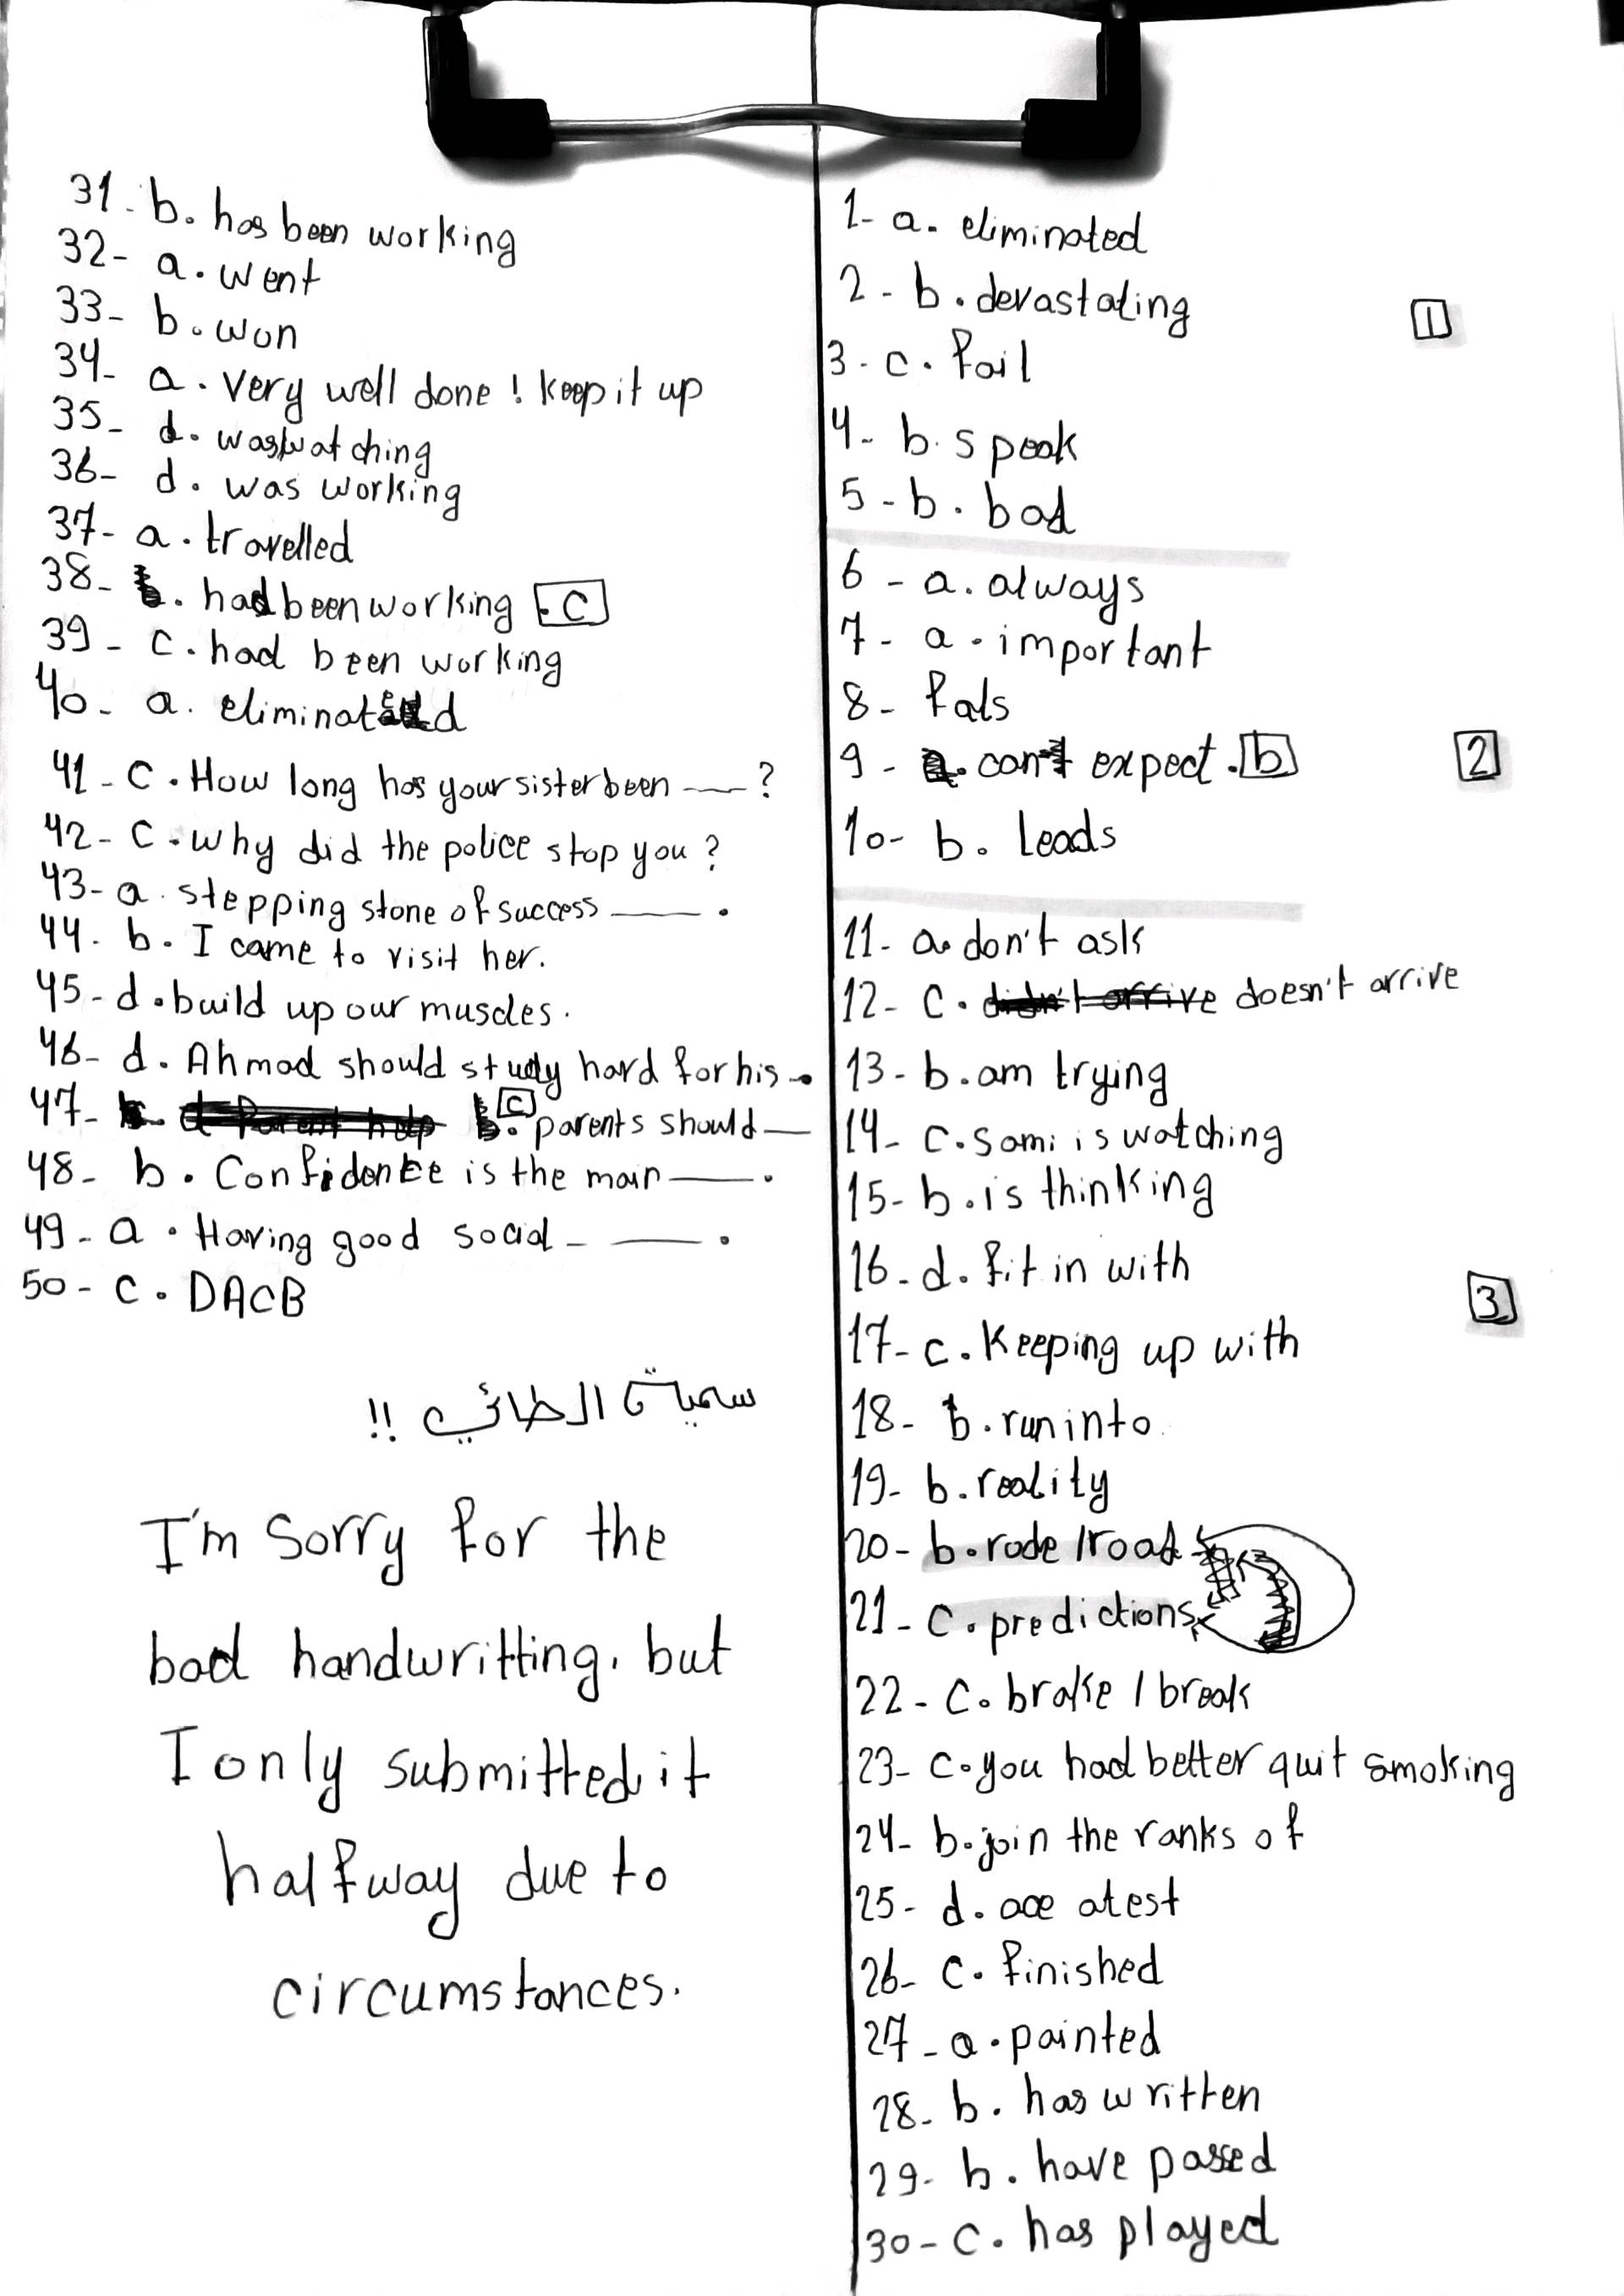 1- a. eliminated
2- b. devastating
1
3- c. Fail
4- b. speak
5- b. bad
6- a. always
7- a. important
8- Fals
9- can expect. b
2
10- b. Leads
11- a. don't ask
12- c. didn't arrive doesn't arrive
13- b. am trying
14- c. Sami is watching
15- b. is thinking
16- d. fit in with
3
17- c. Keeping up with
18- b. run into
19- b. reality
20- b. rode / road
21- c. predictions
22- c. brake / break
23- c. you had better quit smoking
24- b. join the ranks of
25- d. ace a test
26- c. finished
27- a. painted
28- b. has written
29- b. have passed
30- c. has played
31- b. has been working
32- a. went
33- b. won
34- a. Very well done! keep it up
35- d. was watching
36- d. was working
37- a. travelled
38- had been working .c
39- c. had been working
40- a. eliminated
41- c. How long has your sister been —?
42- c. why did the police stop you?
43- a. stepping stone of success —.
44- b. I came to visit her.
45- d. build up our muscles.
46- d. Ahmad should study hard for his -.
47- c parents should —
48- b. Confidence is the main —.
49- a. Having good social - —.
50- c. DACB
سمية الطائي !!
I'm sorry for the
bad handwritting, but
I only submitted it
halfway due to
circumstances.